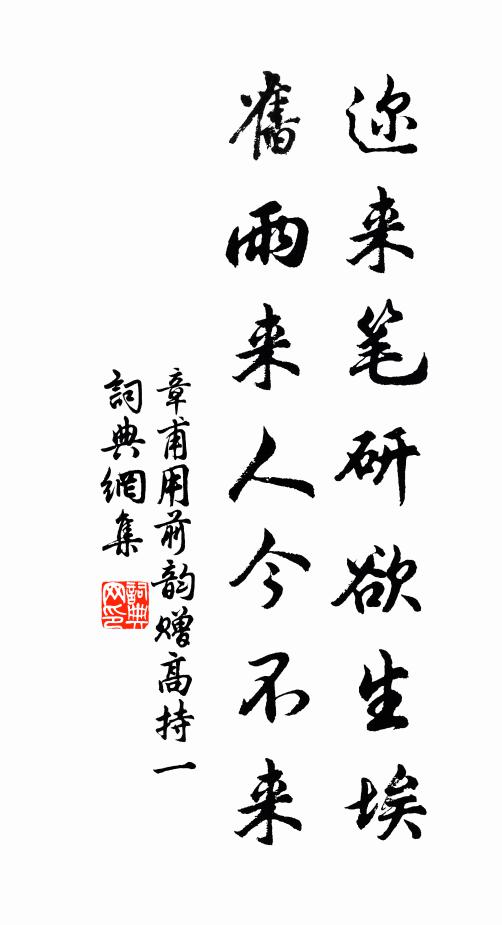 迩来笔研欲生埃
舊雨来人今不来
章甫用前韵赠高持一
詞典網集
詞典网印